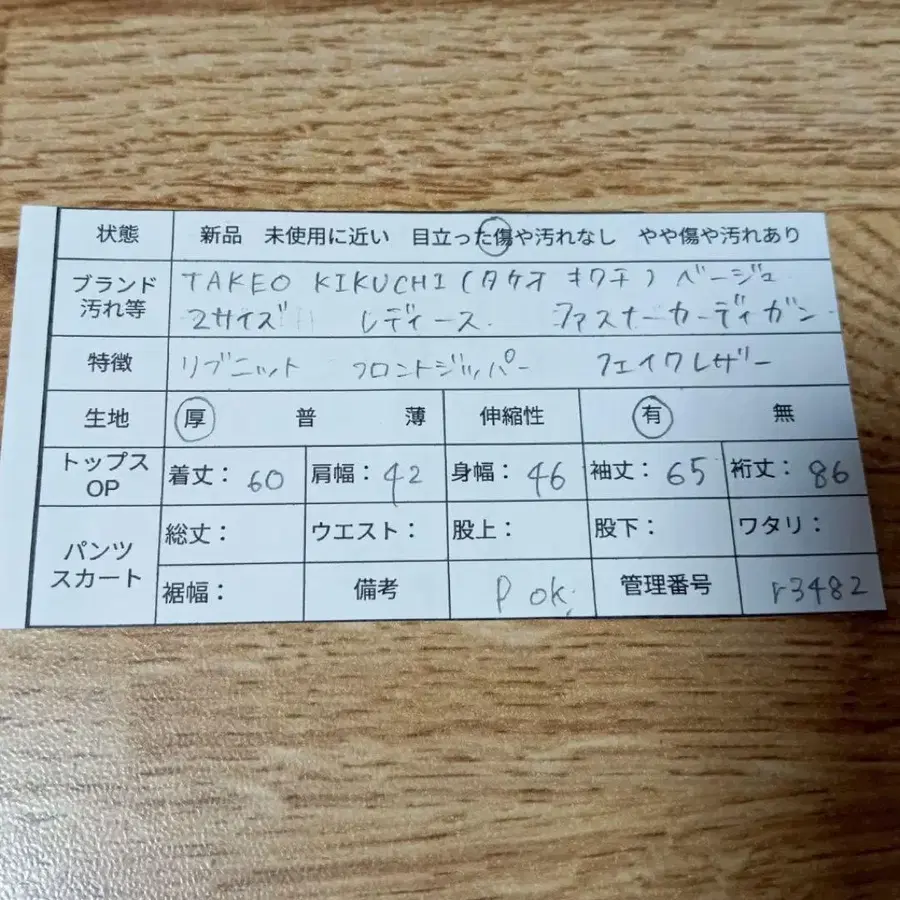 状態 新品 未使用に近い 目立った傷や汚れなし やや傷や汚れあり
ブランド 汚れ等 TAKEO KIKUCHI(タケオ キクチ) ベージュ
2サイズ レディース ファスナーカーディガン
特徴 リブニット フロントジッパー フェイクレザー
生地 厚 普 薄 伸縮性 有 無
トップス OP 着丈: 60 肩幅: 42 身幅: 46 袖丈: 65 裄丈: 86
パンツ スカート 総丈: ウエスト: 股上: 股下: ワタリ:
裾幅: 備考 P ok. 管理番号 r3482